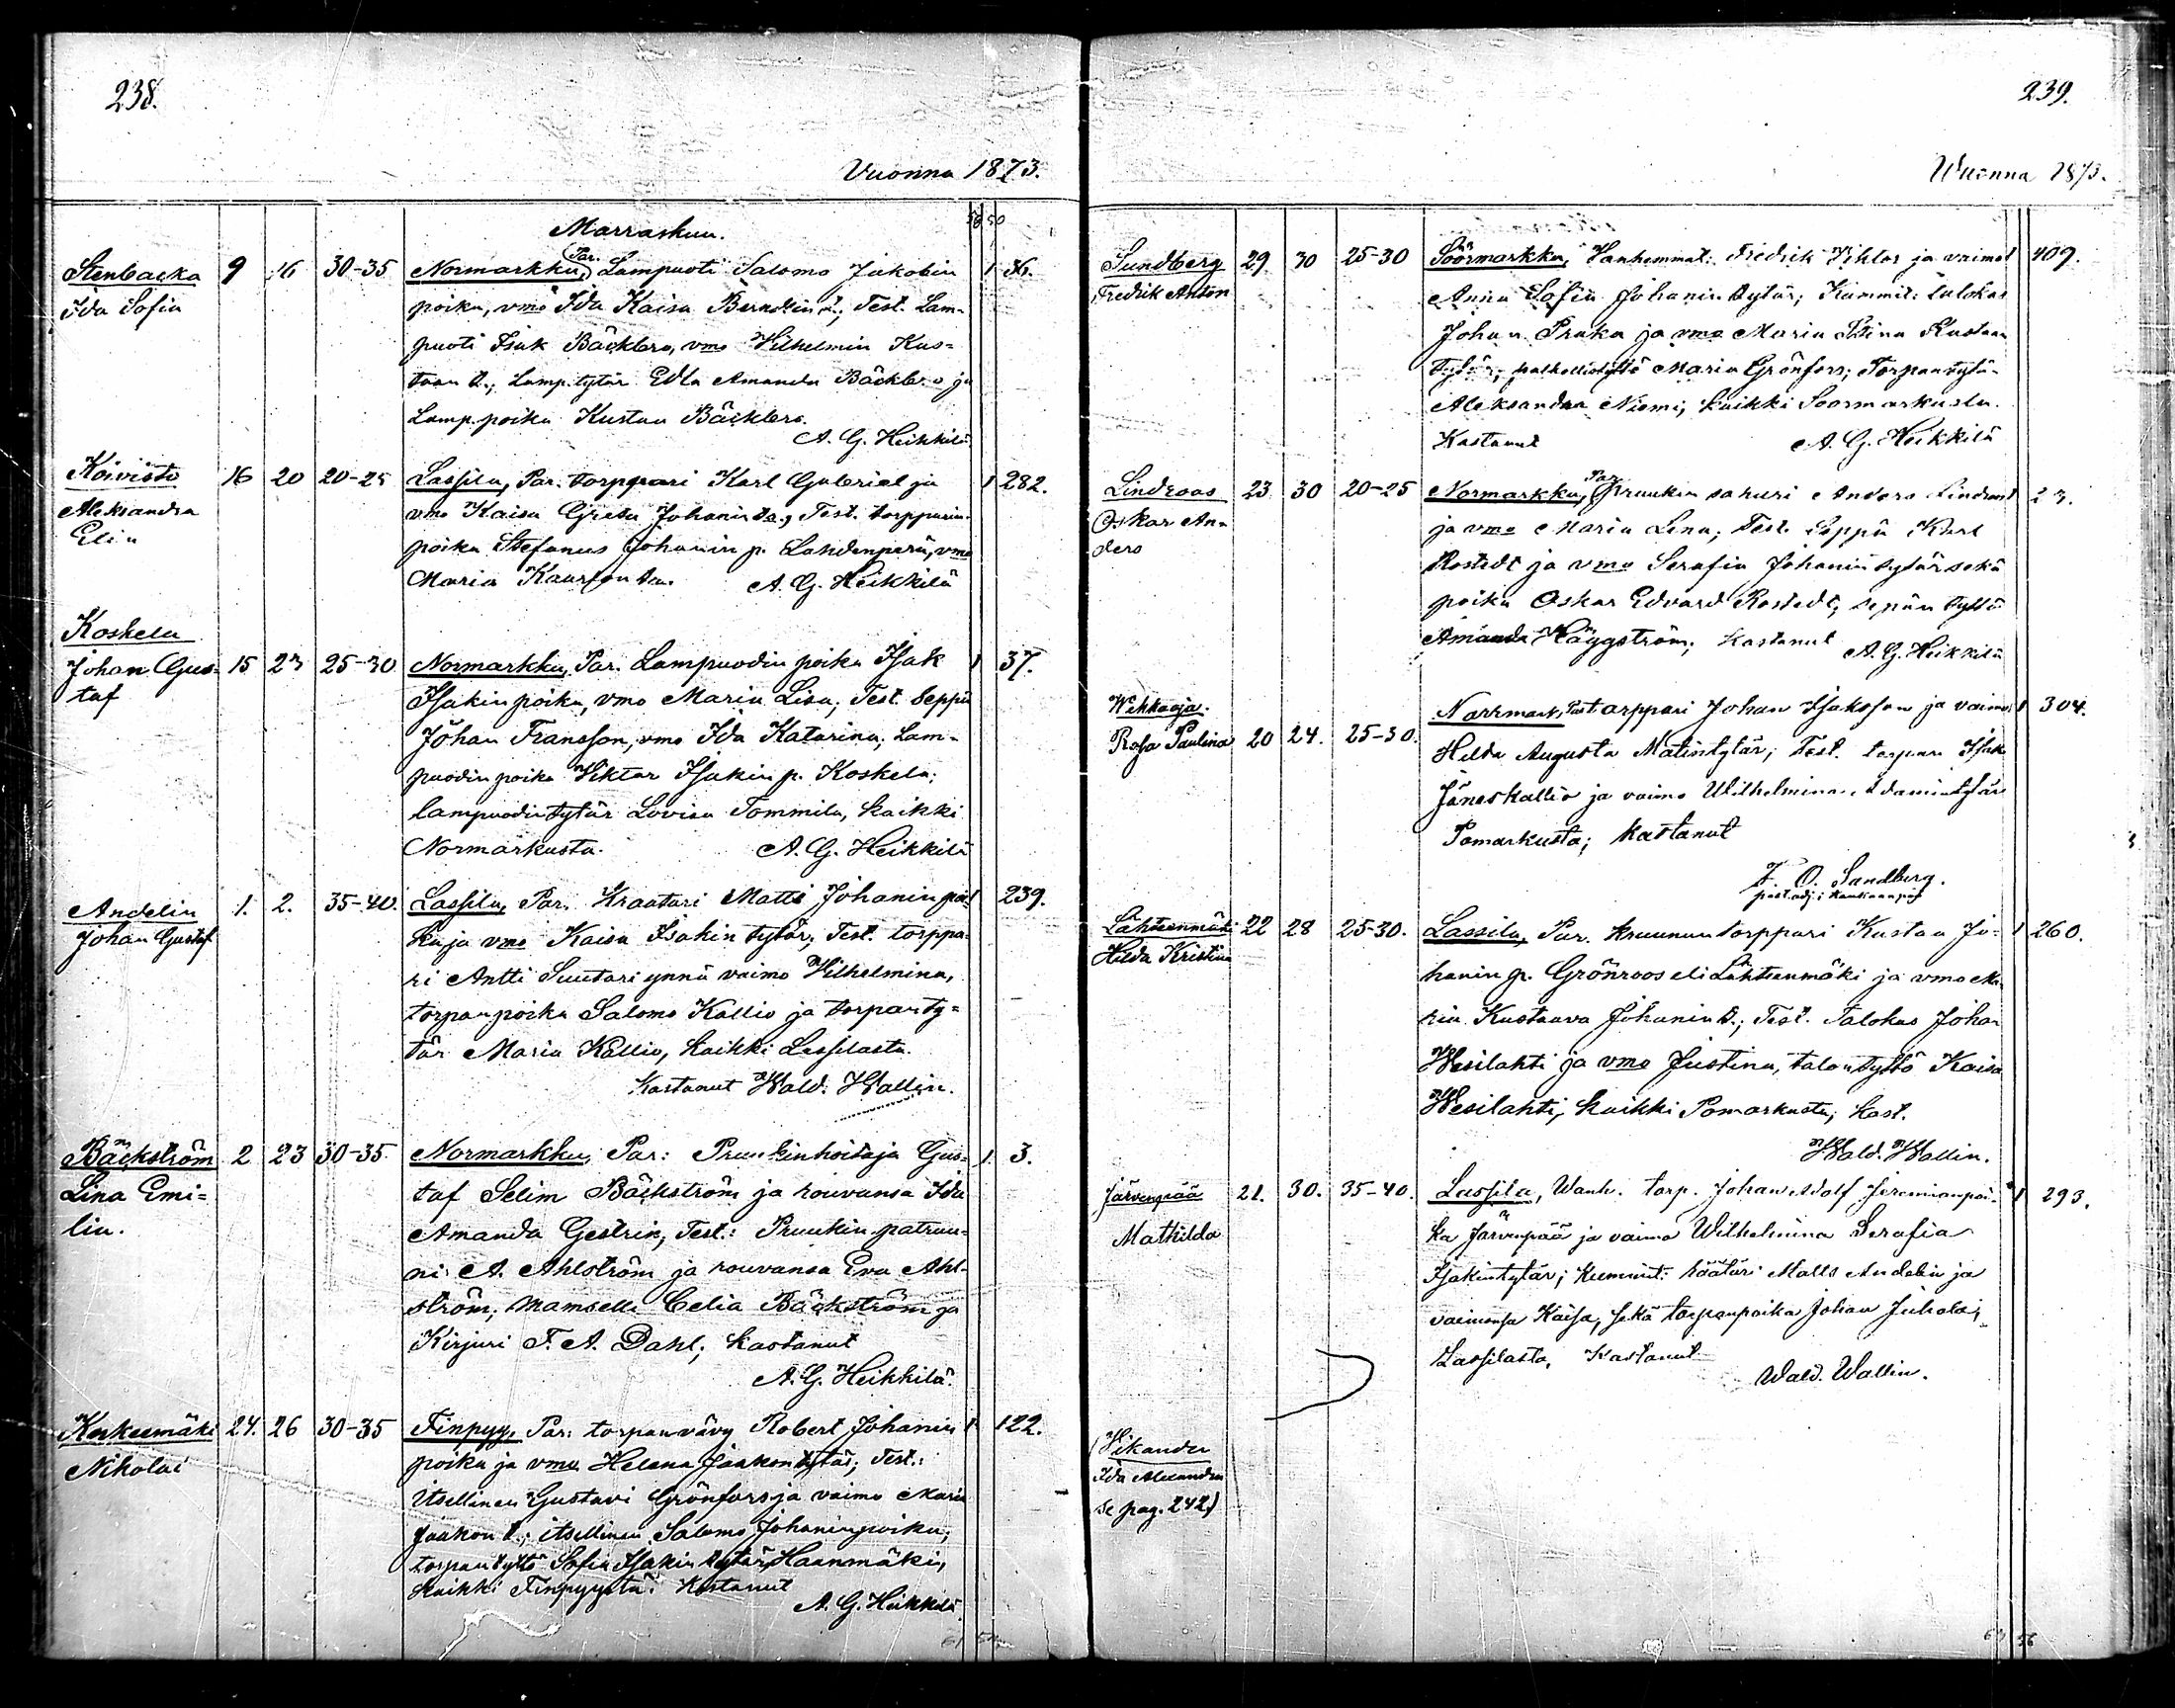 238.
Vuonna 1873.
Marraskuu.
Stenbacka 9 16 30-35 Normarkku, Par. Lampuoti Salomo Jakobin 1 36.
Ida Sofia poika, vmo Ida Kaisa Berndtin t.; Test. Lam-
puoti Isak Bäcklers, vmo Wilhelmin Kus-
taan t.; Lamp.tytär Edla Amanda Bäcklers ja
Lamp.poika Kustaa Bäcklers.
A. G. Heikkilä
Koivisto 16 20 20-25 Lassila, Par. torppari Karl Gabriel ja 1 282.
Aleksandra vmo Kaisa Greta Johanin ta.; Test. torpparin
Elin poika Stefanus Johanin p. Lahdenperä, vmo
Maria A. G. Heikkilä
Koskela
Johan Gus- 15 23 25-30 Normarkku, Par. Lampuodin poika Isak 1 37.
taf Isakin poika, vmo Maria Lisa; Test. Seppä
Johan Fransson, vmo Ida Katarina; Lam-
puodin poika Viktor Isakin p. Koskela;
lampuodin tytär Lovisa Tommila, kaikki
Normarkusta. A. G. Heikkilä
Andelin 1. 2. 35-40. Lassila, Par. Kraatari Matti Johanin poi- 1 239.
Johan Gustaf ka ja vmo Kaisa Isakin tytär, Test. torppa-
ri Antti Suutari ynnä vaimo Wilhelmina,
torpanpoika Salomo Kallio ja torpanty-
tär Maria Kallio, kaikki Lassilasta.
Kastanut Wald. Wallin.
Bäckström 2 23 30-35 Normarkku, Par: Pruukinhoitaja Gus- 1. 3.
Lina Emi- taf Selim Bäckström ja rouvansa Ida
lia. Amanda Gestrin; Test.: Pruukin patruu-
ni A. Ahlström ja rouvansa Eva Ahl-
ström; mamselli Celia Bäckström ja
Kirjuri F. A. Dahl; kastanut
A. G. Heikkilä.
Kerkeemäki 24. 26 30-35 Finpyy, Par: torpanvävy Robert Johanin 1 122.
Nikolai poika ja vmo Helena Jaakontytär; Test.:
Itsellinen Gustavi Grönfors ja vaimo Maria
Jaakon t.; itsellinen Salomo Johaninpoika;
torpan tyttö Sofia Isakin tytär Haanmäki,
kaikki Finpyystä: Kastanut
A. G. Heikkilä.
239.
Wuonna 1873.
Sundberg 29. 30 25-30 Söörmarkku, Vanhemmat: Fredrik Vihtor ja vaimo 1 409.
Fredrik Anton Anna Sofia Johanin tytär; Kummit: talokas
Johan Pruka ja vmo Maria Stina Kustaan
tytär; Maria Grönfors; Torpantytär
Aleksandra Niemi; kaikki Soormarkusta.
Kastanut A. G. Heikkilä
Lindroos 23 30 20-25 Normarkku, Par. Pruukin sahuri Anders Lindroos 1 23.
Oskar An- ja vmo Maria Lena; Test. Seppä Karl
ders Rostedt ja vmo Serafia Johanin tytär sekä
poika Oskar Edvard Rostedt; sepän tyttö
Amanda Häggström; kastanut A. G. Heikkilä
Wehkaoja. Norrmark, Past. torppari Johan Isaksson ja vaimo 1 304.
Rosa Paulina 20 24. 25-30. Hilda Augusta Matintytär; Test. torpari Isak
Jäneskallio ja vaimo Wilhelmina Adamintytär
Pomarkusta; kastanut
F. O. Sandberg.
past. adj. i Kankaanpää
Lähteenmäki 22 28 25-30. Lassila, Par. kruunun torppari Kustaa Jo- 1 260.
Hilda Kristina hanin p. Grönroos eli Lähteenmäki ja vmo Ma-
ria Kustaava Johanin t.; Test. Talokas Johan
Wesilahti ja vmo Justina, talontyttö Kaisa
Wesilahti, kaikki Pomarkusta; kast.
Wald. Wallin.
Järvenpää 21. 30. 35-40. Lassila, Wanh. torp. Johan Adolf Jeremianpoi- 1 293.
Mathilda ka Järvenpää ja vaimo Wilhelmina Serafia
Isakintytär; Kummit: räätäri Matts Andelin ja
vaimonsa Kaisa, sekä torpanpoika Johan Juhala;
Lassilasta, Kastanut
Wald. Wallin.
(Vikander
Ida Alexandra
se pag. 242)